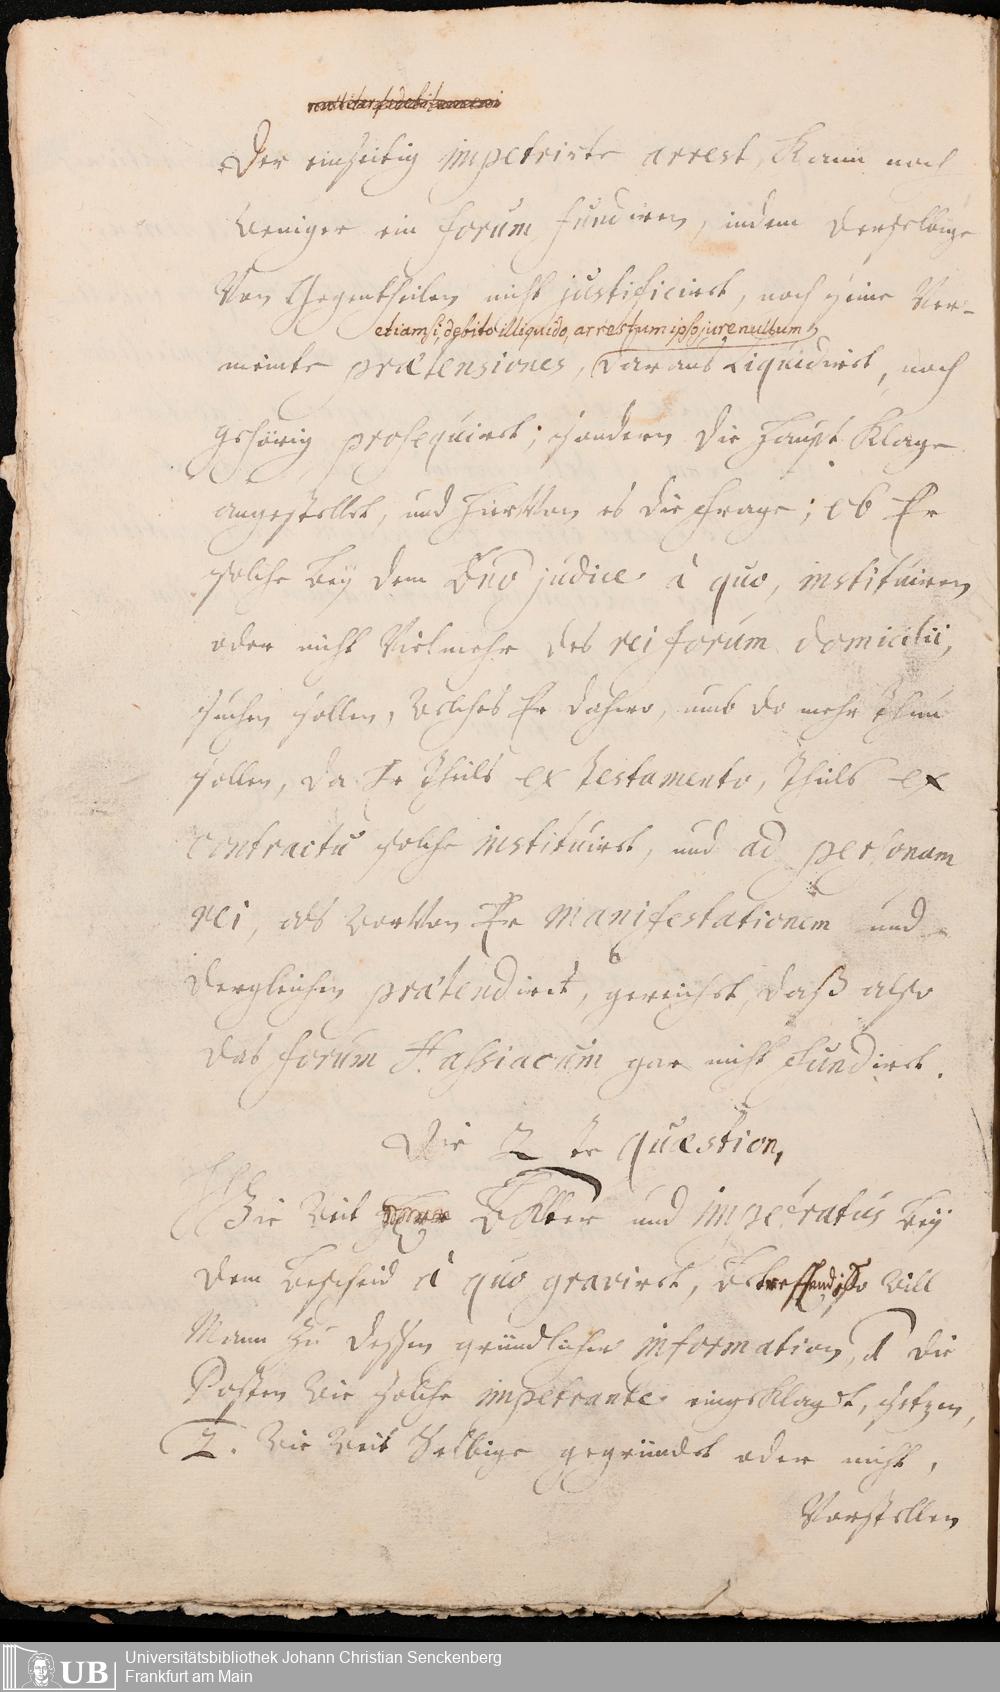 Der einseitig impetrirte arrest, Kann noch
weniger ein forum fundiren, indem derselbige
Von Gegentheilen nicht justificiret, noch seine Ver-
etiamsi, debito illiquido, arrestum ipso jure nullum
meinte prætensiones, daraus Liquidiret, noch
gehörig prosequiret; sondern die Haupt Klage
angestellet, und hierVon es die Frage; ob Er
solche bey dem Dno judice à quo, instituiren
oder nicht Vielmehr des rei forum domicilii,
suchen sollen, welches Er dahero, umb do mehr thun
sollen, da Er theils ex testamento, theils ex
contractu solche instituiret, und ad personam
rei, als worVon Er manifestationem und
dergleichen prætendiret, gereichet, daß also
das forum Hassiacum gar nicht fundiret.
Die 2te quæstion,
Wie weit und impetratus bey
dem bescheid à quo graviret, betreffend; So will
Mann zu dessen gründlicher information, 1 die
Posten wie solche impetrante eingeklaget, setzen,
2. Wie weit Selbige gegründet oder nicht,
Vorstellen
Universitätsbibliothek Johann Christian Senckenberg
Frankfurt am Main
UB